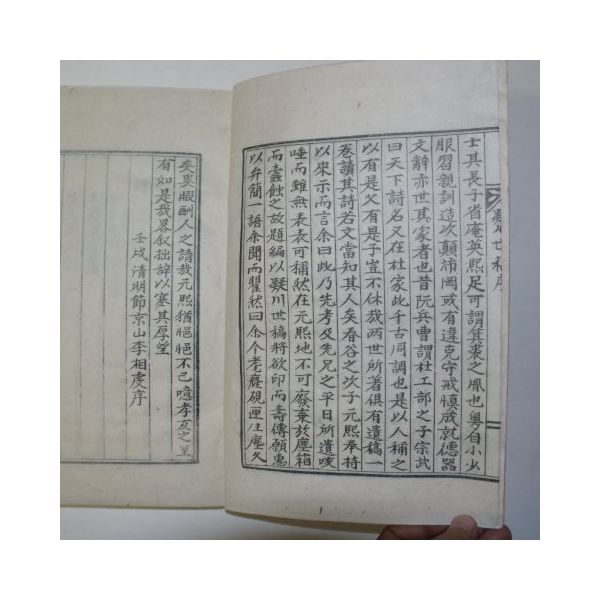 士其長子省庵英熙足可謂箕裘之胤也粤自小少
服習親訓造次顚沛罔或有違克守戒愼咸就德器
文辭亦世其家者也昔阮兵曹謂杜工部之子宗武
曰天下詩名又在杜家此千古同調也是以人稱之
以有是父有是子豈不休哉两世所著俱有遺稿一
卷讀其詩若文當知其人矣春谷之次子元熙奉持
以來示而言余曰此乃先考及先兄之平日所遺咳
唾而雖無表表可稱然在元熙地不可廢棄於塵箱
而蠹蝕之故題編以凝川世稿將欲印而壽傳願惠
以弁簡一語余聞而瞿然曰余今老癃硯匣生塵久
矣奚暇酬人之請哉元熙猶挹挹不已噫孝友之至
有如是哉畧叙拙辭以塞其厚望
壬戌淸明節京山李相虔序
世稿序
1